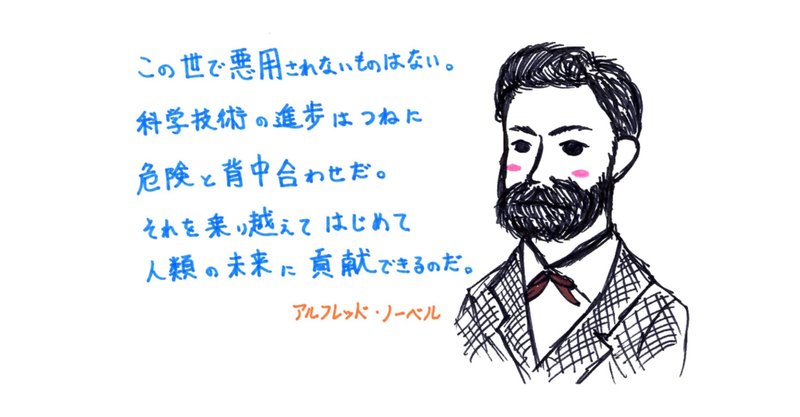 この世で悪用されないものはない。
科学技術の進歩はつねに
危険と背中合わせだ。
それを乗り越えてはじめて
人類の未来に貢献できるのだ。
アルフレッド・ノーベル